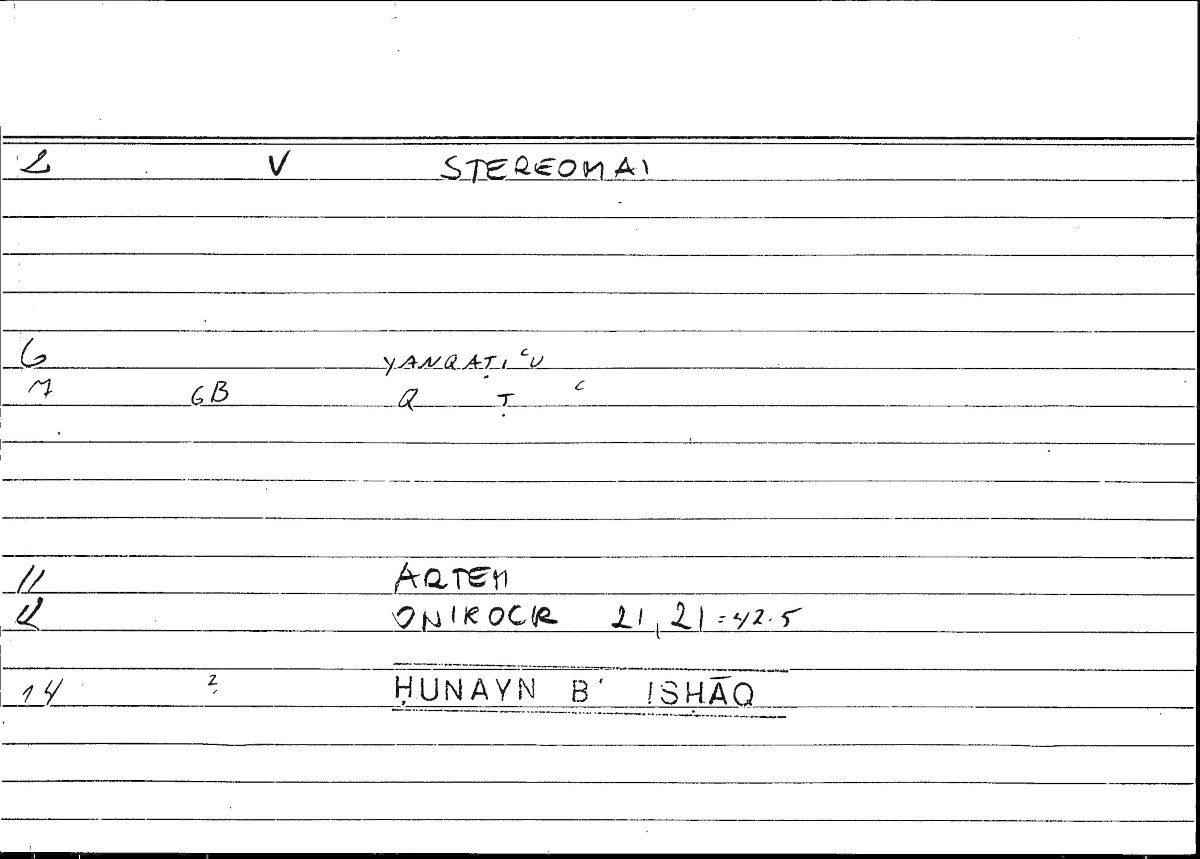 2 V STEREOMAI
6 YANQAṬIʿU
7 GB Q Ṭ ʿ
11 ARTEM
12 ONIROCR 21,21=42.5
14 2. ḤUNAYN B' ISḤĀQ